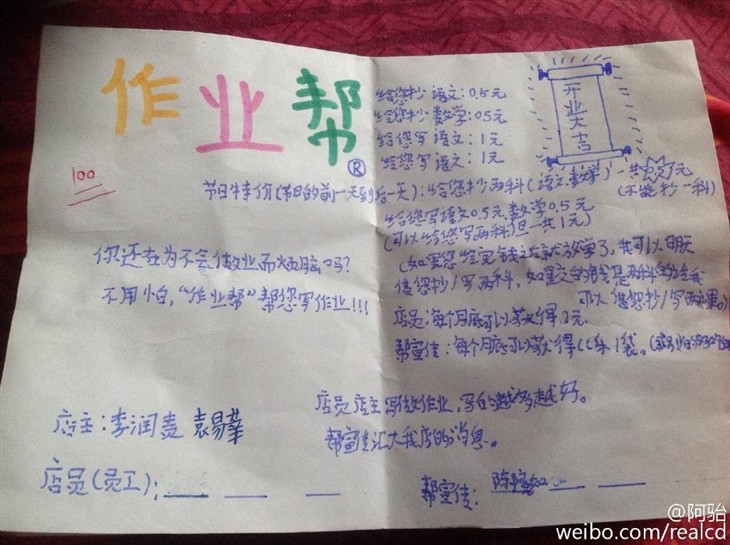 作业帮
®
100
你还在为不会做业而烦脑吗?
不用怕,“作业帮”帮您写作业!!!
店主:李润
店员(员工):
给您抄语文:0.5元
给您抄数学:0.5元
给您写语文:1元
给您写语文:1元
开业大吉
节日特价(节日的前一天到后一天):给您抄两科(语文.数学)一共
(不能抄一科)
给您写语文0.5元.数学0.5元
(可以给您写两科)但一共1元)
(如果您给完钱之后就放学了,我可以明天
借您抄/写两科,如果交的钱是两科的话我
可以借您抄/写两
店员:每个月底可以获得1元.
帮宣传:每个月底可以获得CC乐1袋。
店员店主写做作业,写的越多越好。
帮宣传汇大我店的消息。
帮宣传:陈
@阿骀
weibo.com/realcd